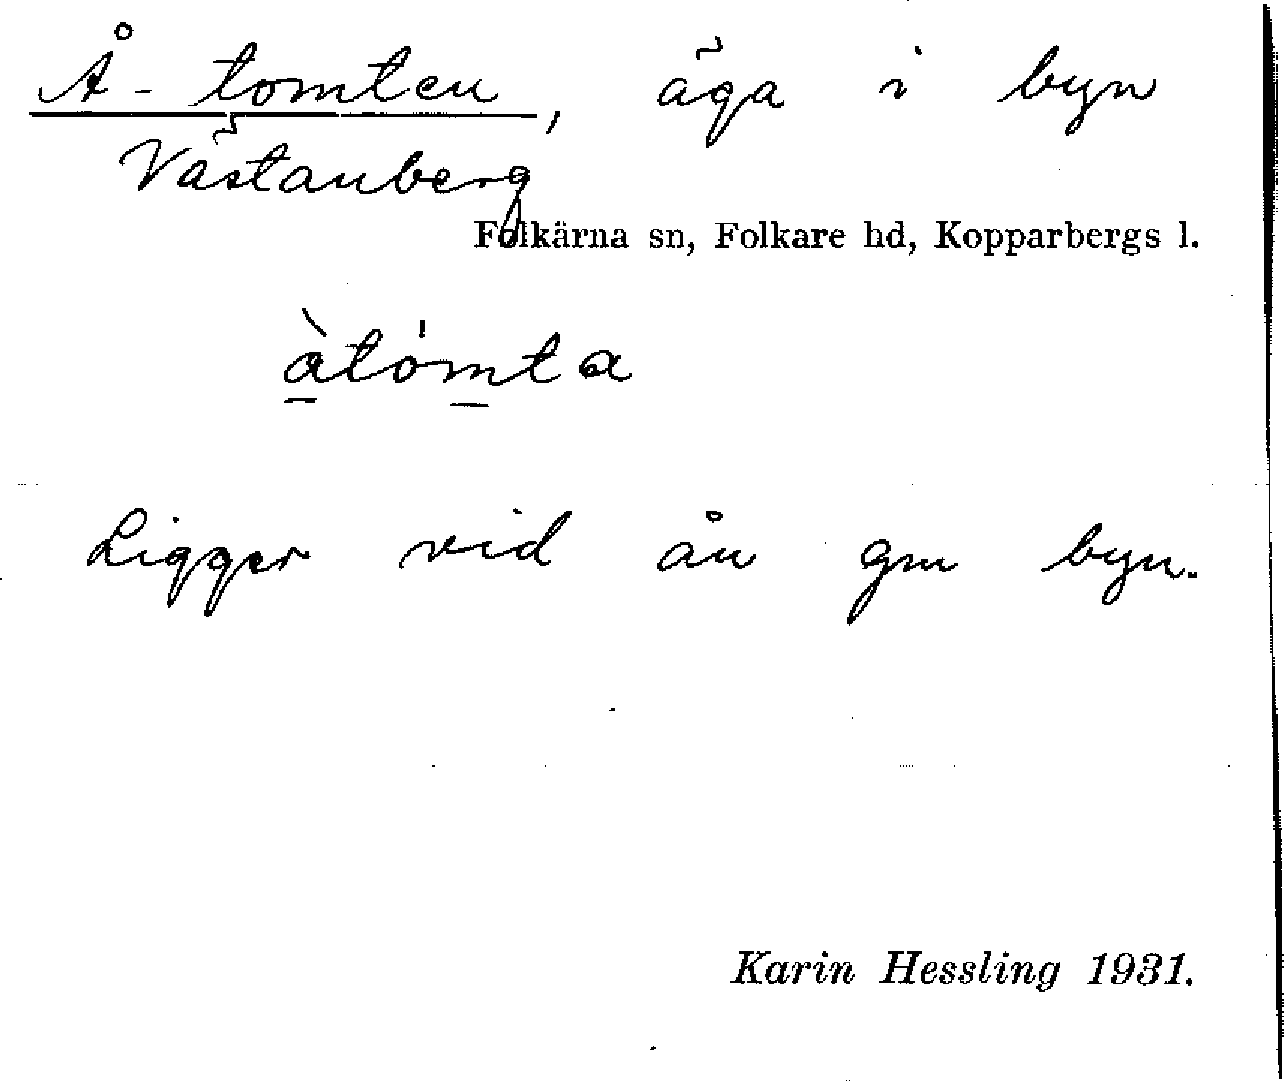 Å-tomten, äga i byn
Västanberg
Folkärna sn, Folkare hd, Kopparbergs l.
àtómta
Ligger vid ån gm byn.
Karin Hessling 1931.